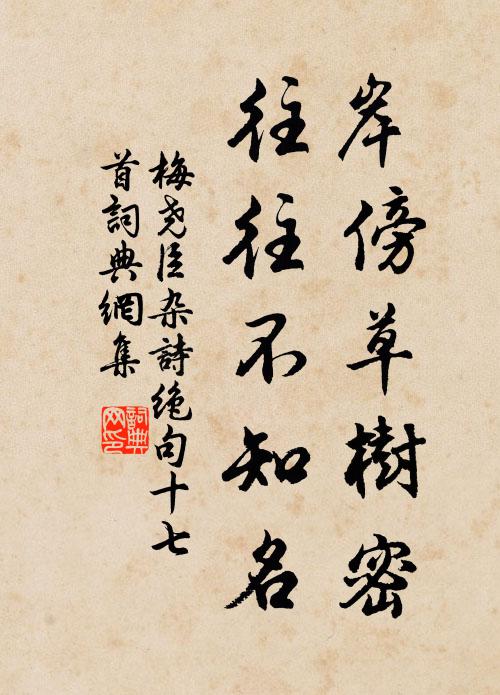 岸傍草樹密
往往不知名
梅尧臣杂詩絶句十七
首詞典網集
詞典网印